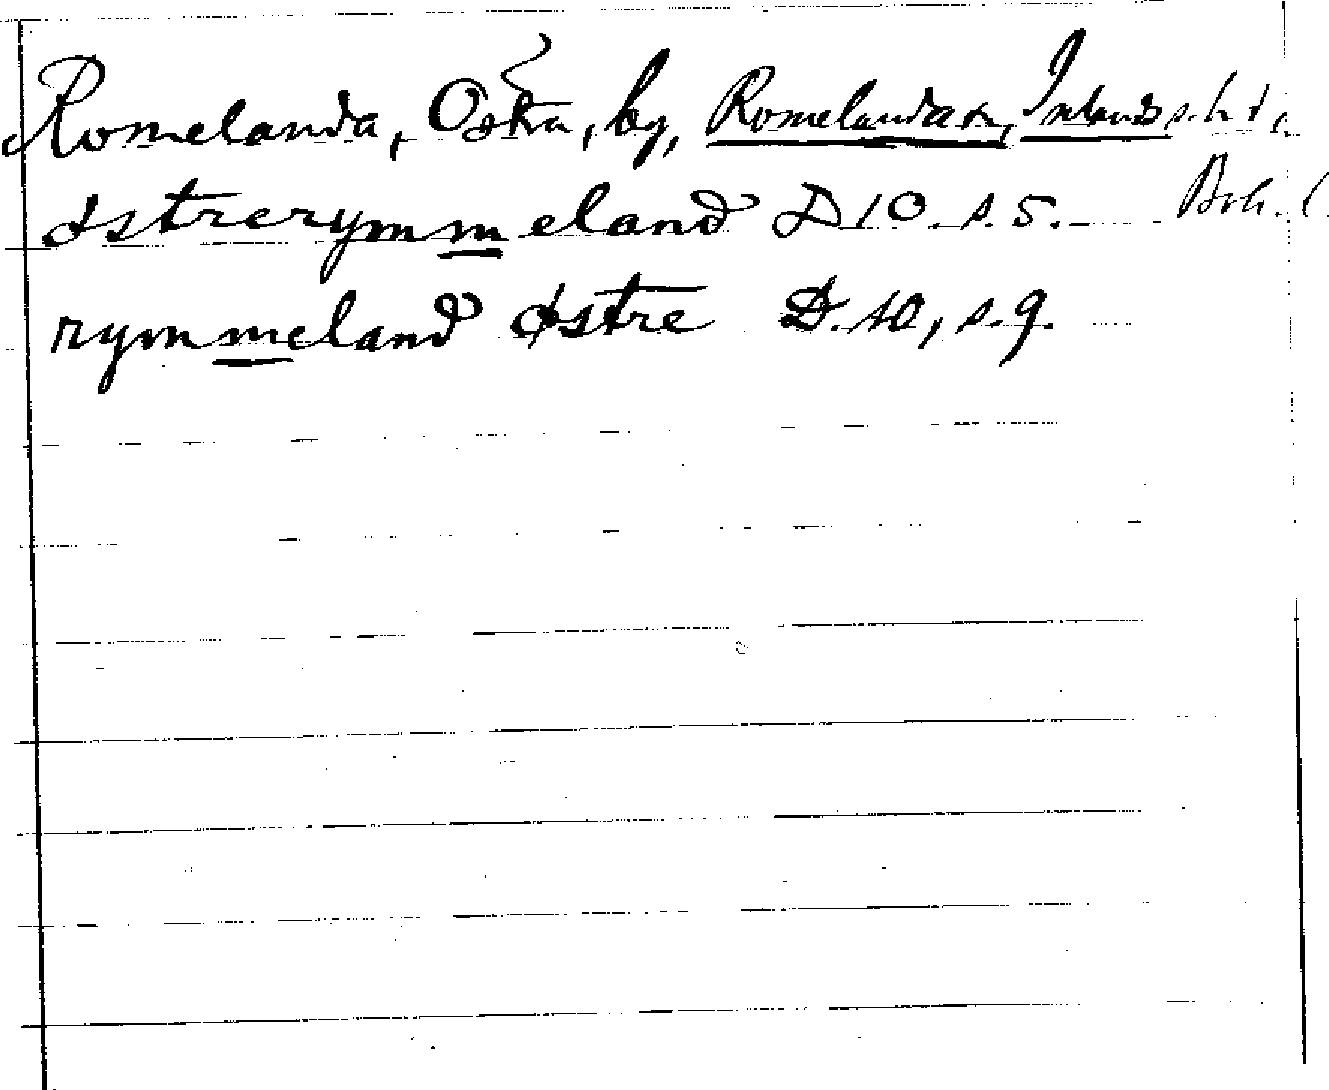 Romelanda, Östra, by, Romelanda sn, Inlands hd,
Boh. l.
østrerymmeland D 10. s. 5.
rymmeland østre D. 10, s. 9.